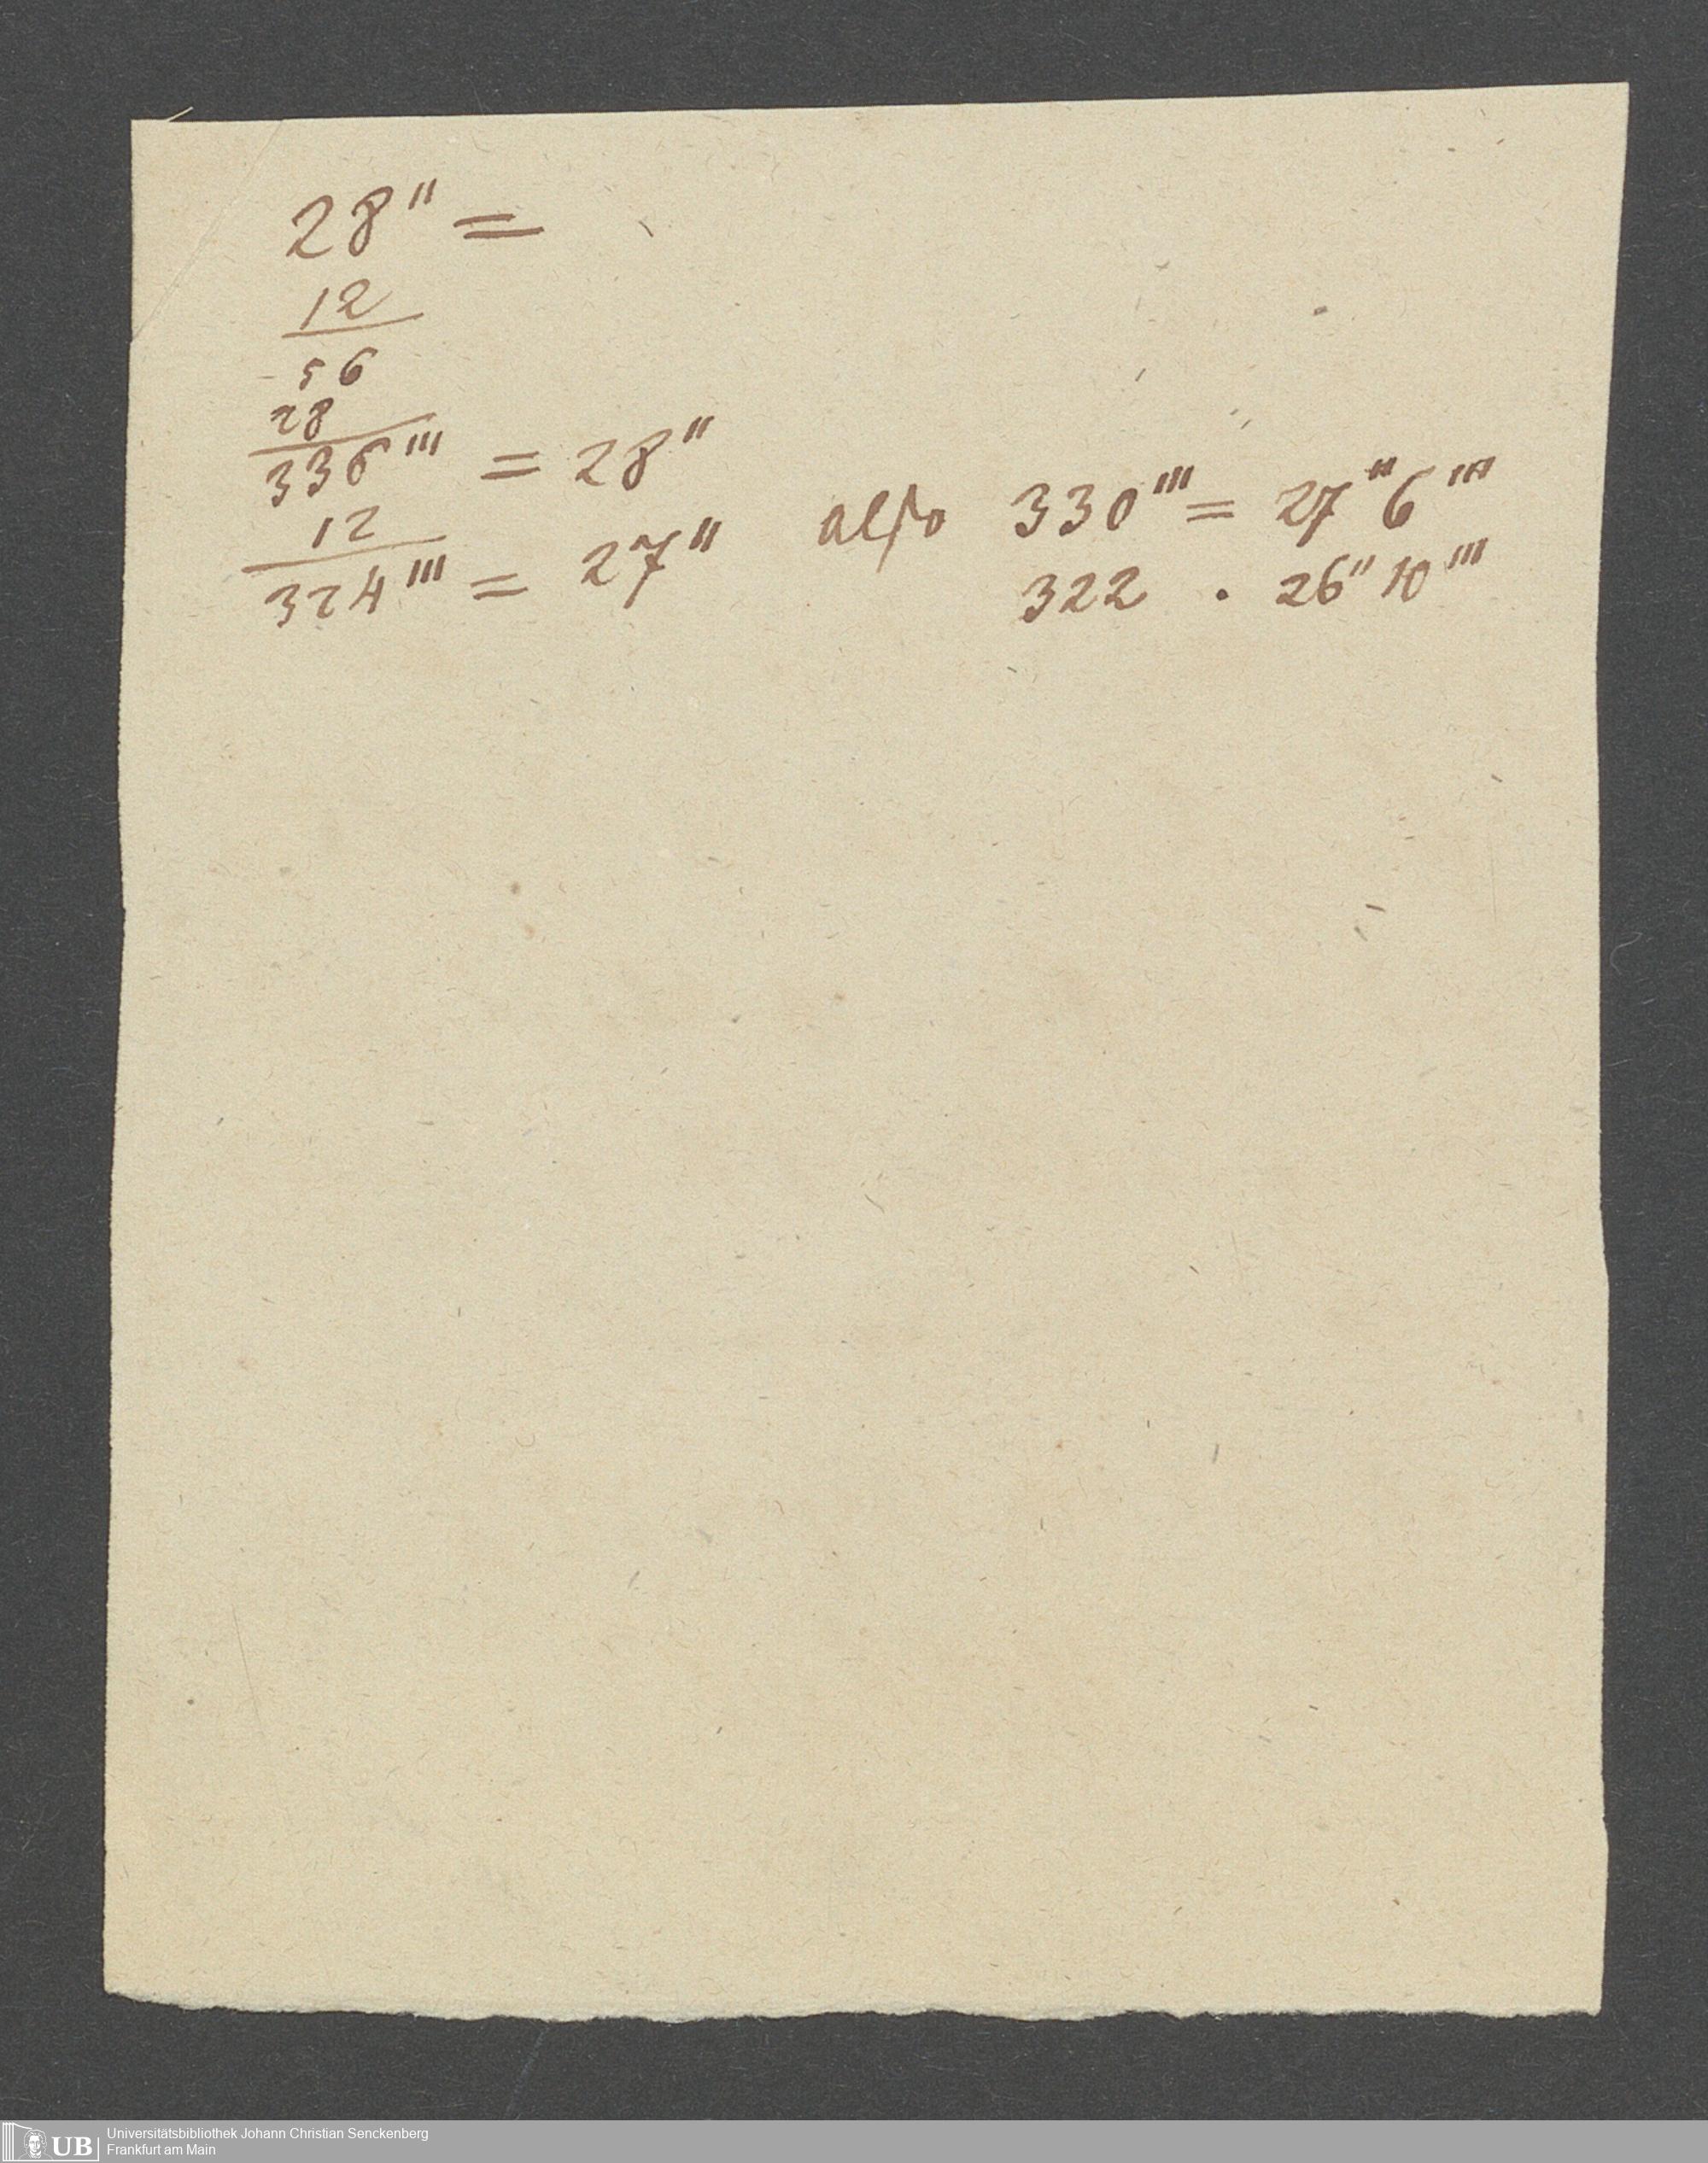 28'' =
12
56
28
336''' = 28''
12
324''' = 27''
also 330''' = 27''6'''
322 . 26''10'''
UB
Universitätsbibliothek Johann Christian Senckenberg
Frankfurt am Main